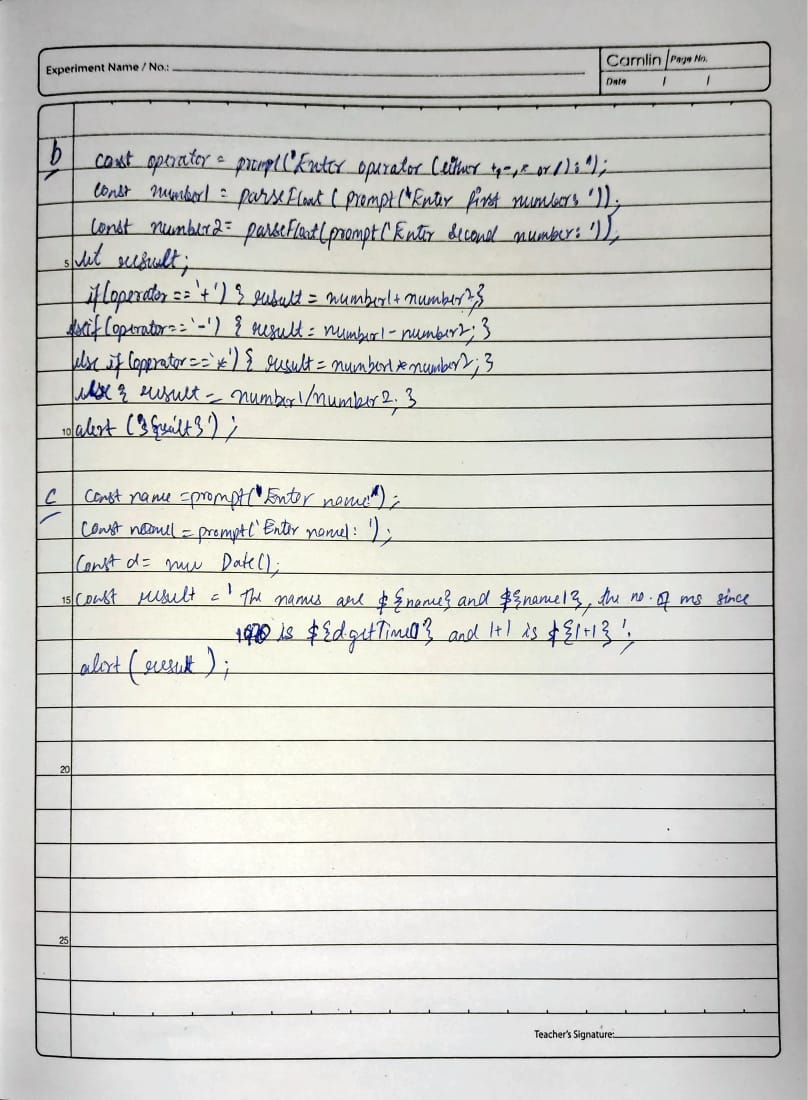 Experiment Name / No.:
Camlin Page No.
Date / /
b const operator = prompt('Enter operator (either +,-,* or /): ');
const number1 = parseFloat ( prompt ('Enter first number: '));
const number2= parseFloat(prompt('Enter second number: '));
5 let result;
if(operator == '+') { result = number1 + number2;}
else if (operator == '-') { result = number1 - number2; }
else if (operator == '*') { result = number1 * number2; }
else { result = number1/number2; }
10 alert ( ) ;
c const name = prompt('Enter name:');
const name1 = prompt('Enter name1: ');
const d= new Date();
15 const result = ' The names are ${name} and ${name1}, the no. of ms since
1970 is ${d.getTime()} and 1+1 is ${1+1} ';
alert ( result );
20
25
Teacher's Signature: